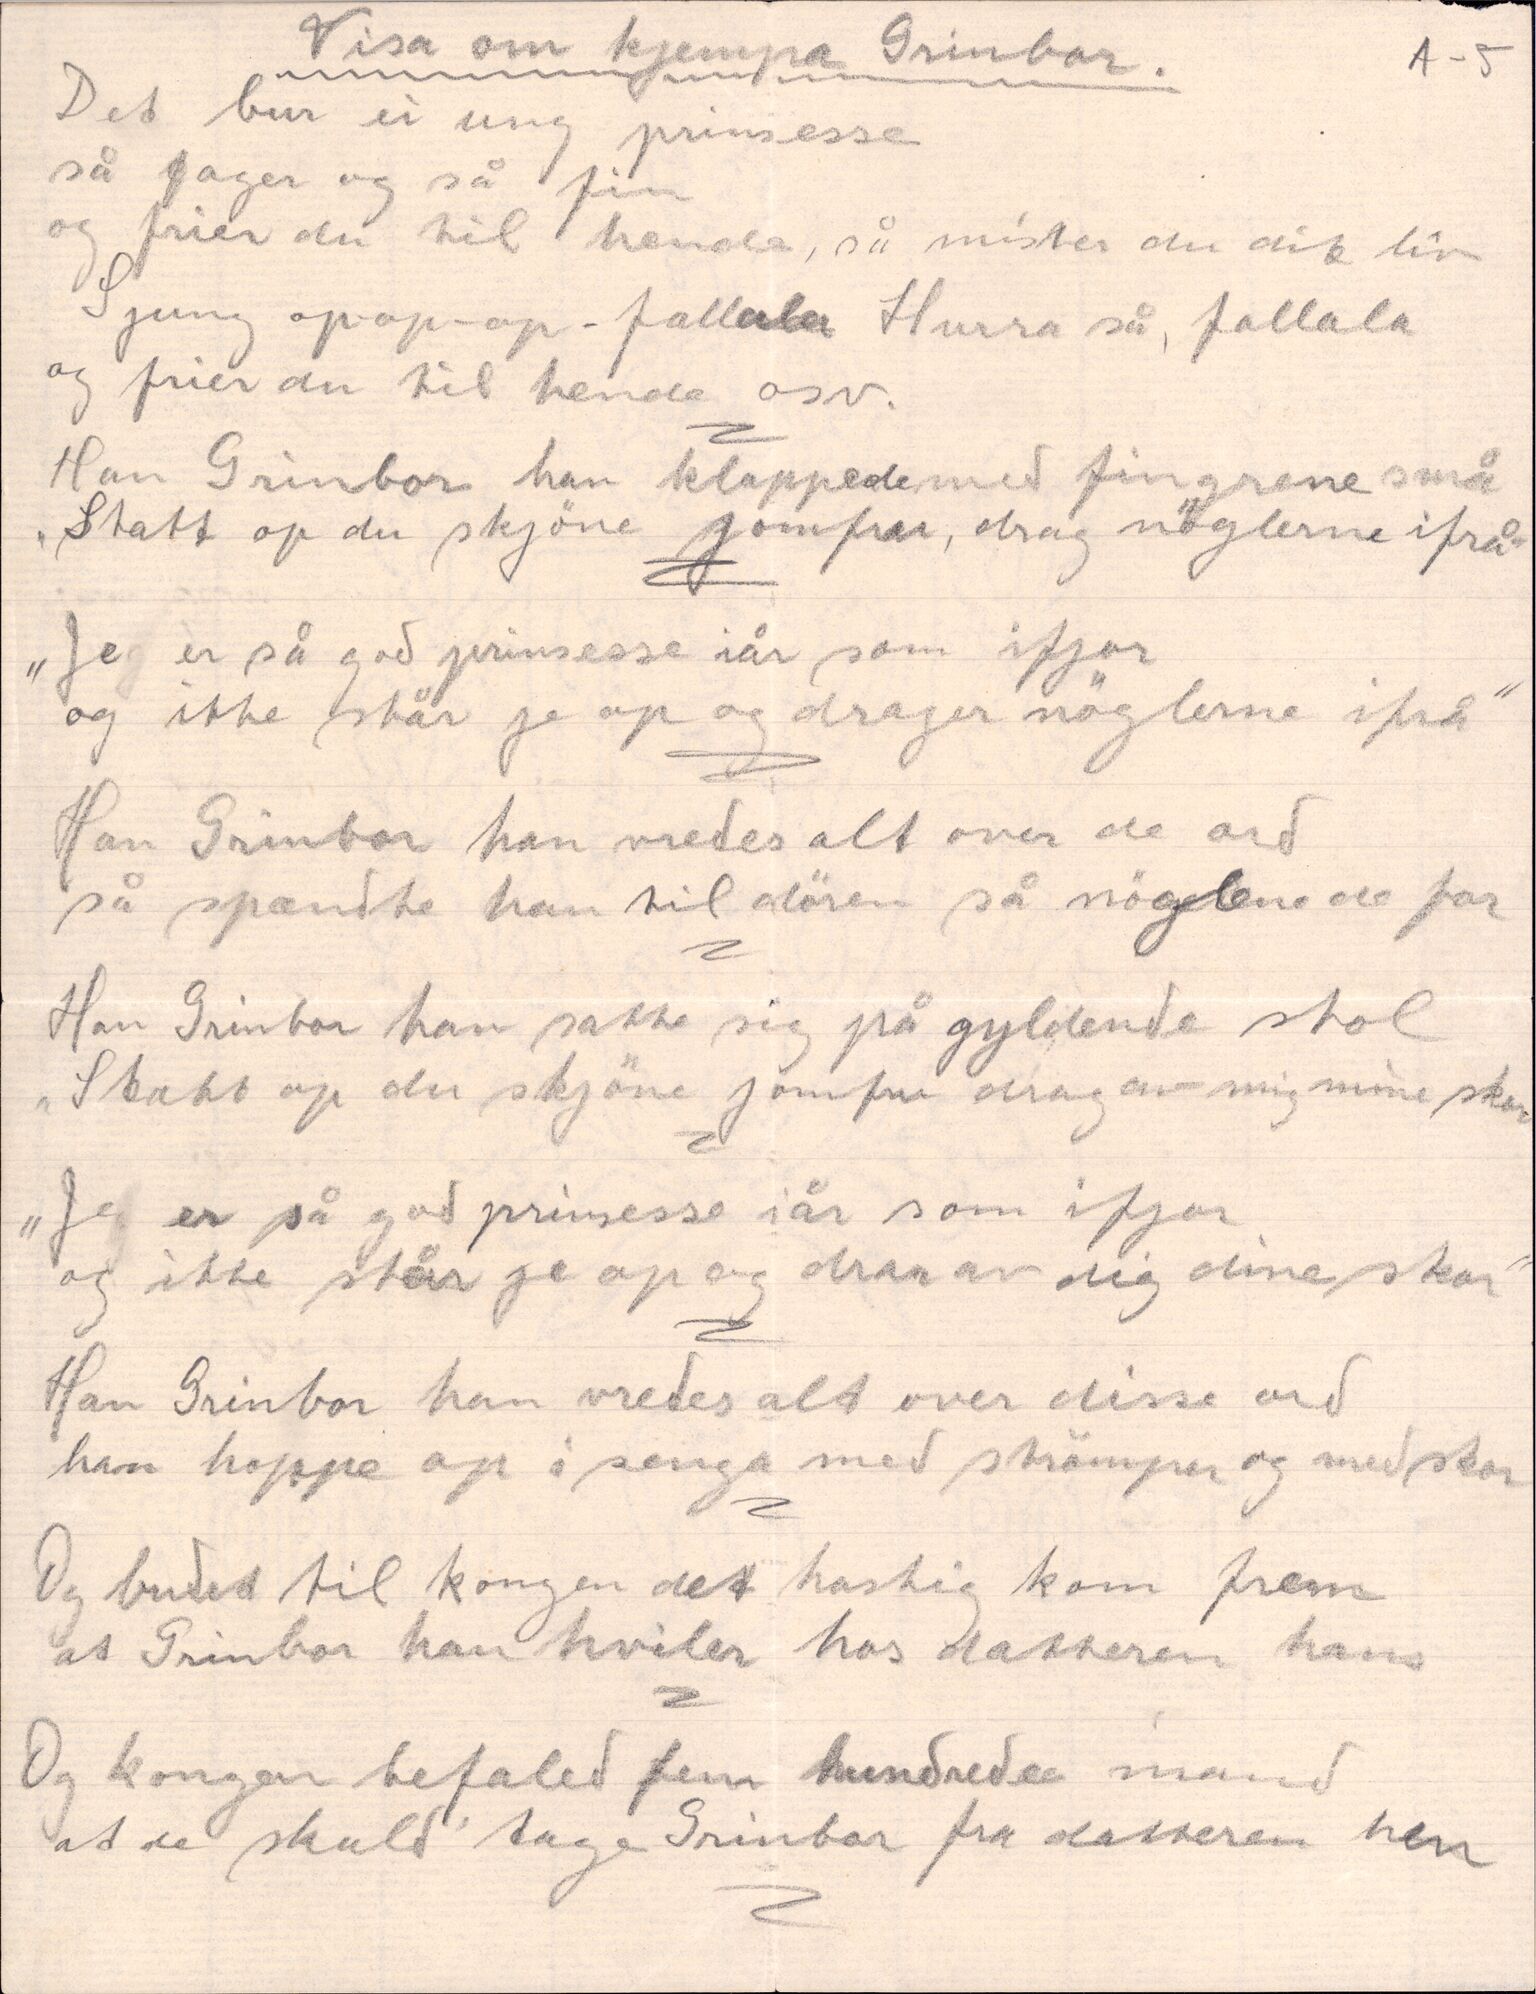 Visa om kjempa Grinbor.
A-5
Det bur ei ung prinsesse
så fager og så fin
og frier du til henda, så mister du dit liv
Sjung op-op-op-fallala Hurra så, fallala
og frier du til hende osv.
Han Grinbor han klappede med fingrene små
"Statt op du skjöne jomfru, drag nöglerne ifrå"
"Jeg er så god prinsesse iår som ifjor
og ikke står je op og drager nöglerne ifrå"
Han Grinbor han vredes alt over de ord
så spændte han til dören så nöglene de for
Han Grinbor han satte sig på gyldende stol
"Statt op du skjöne jomfru drag av mig mine skor
"Jeg er så god prinsesse iår som ifjor
og ikke står je op og drar av dig dine skor"
Han Grinbor han vredes alt over disse ord
han hoppe op i senga med strömper og med skor
Og budet til kongen det hastig kom frem
at Grinbor han hviler hos datteren hans
Og kongen befaled fem hundrede mand
at de skuld' tage Grinbor fra datteren hen